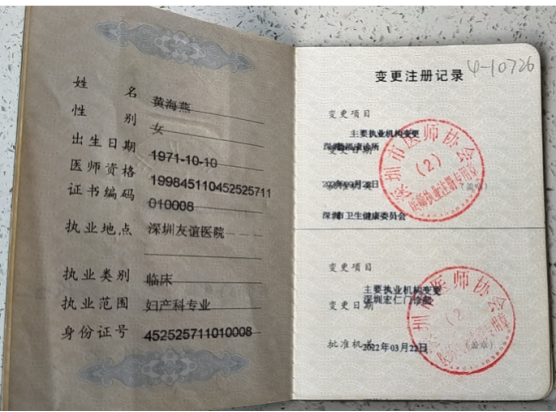 姓名 黄海燕
性别 女
出生日期 1971-10-10
医师资格 199845110452525711
证书编码 010008
执业地点 深圳友谊医院
执业类别 临床
执业范围 妇产科专业
身份证号 452525711010008
4-10726
变更注册记录
变更项目
主要执业机构变更
变更日期
(盖章)
深圳市卫生健康委员会
深圳市医师协会
(2)
变更项目
主要执业机构变更
深圳宏仁门诊部
变更日期
批准机关
2022年03月22日
(盖章)
深圳市医师协会
(2)